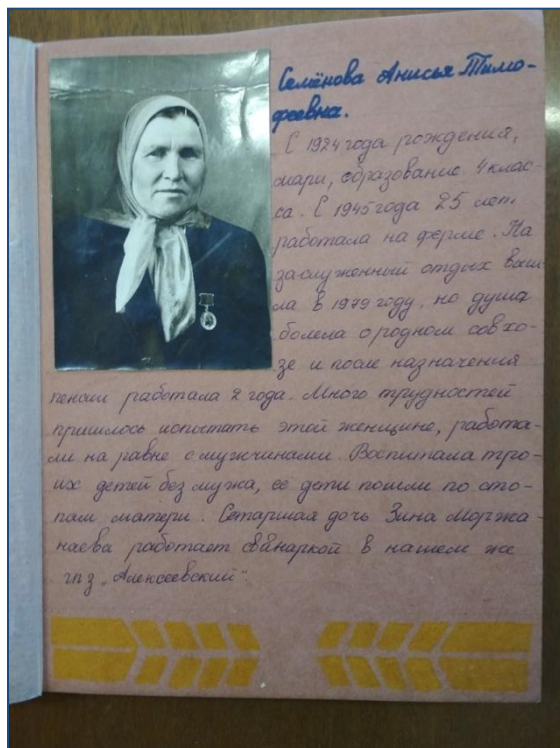 Семёнова Анисья Тимо-
феевна.
С 1924 года рождения,
мари, образование 4 клас-
са. С 1945 года 25 лет
работала на ферме. На
заслуженный отдых выш-
ла в 1979 году, но душа
болела о родном совхо-
зе и после назначения
пенсии работала 2 года. Много трудностей
пришлось испытать этой женщине, работа-
ли на равне с мужчинами. Воспитала тро-
их детей без мужа, ее дети пошли по сто-
пам матери. Сетаршая дочь Зина Моржа-
наева работает свинаркой в нашем же
гпз „Алексеевский".